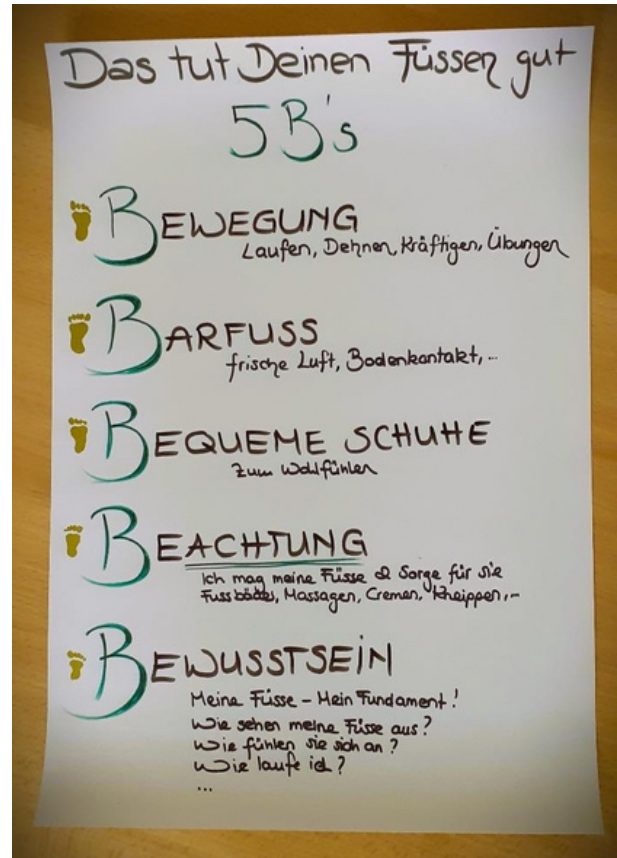 Das tut Deinen Füssen gut
5B's
BEWEGUNG
Laufen, Dehnen, Kräftigen, Übungen
BARFUSS
frische Luft, Bodenkontakt, ...
BEQUEME SCHUHE
zum Wohlfühlen
BEACHTUNG
Ich mag meine Füsse & Sorge für sie
Fussbäder, Massagen, Cremen, Kneippen, ...
BEWUSSTSEIN
Meine Füsse - Mein Fundament!
Wie sehen meine Füsse aus?
Wie fühlen sie sich an?
Wie laufe ich?
...